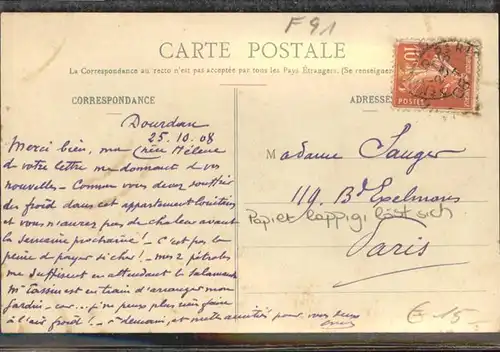 F91
CARTE POSTALE
La Correspondance au recto n'est pas acceptée par tous les Pays Étrangers. (Se renseigner
CORRESPONDANCE
ADRESSE
10
POSTES
Dourdan
25.10.08
Merci bien, ma chère Hélène
de votre lettre me donnant d vos
nouvelles – Comme vous devez souffrir
du froid dans cet appartement
et vous n'aurez pas de chaleur avant
la semaine prochaine! – C'est pas la
peine de payer si cher! – mes 2 pétroles
me suffisent en attendant la salamandre
Mr Tassin est en train d'arranger mon
jardin – car... j'ne peux plus rien faire
à l'air froid! – à demain, et mille amitiés pour vous deux
Madame Sauger
119, Bd Exelmans
Papier lappig! löst sich
Paris
€ 15.-